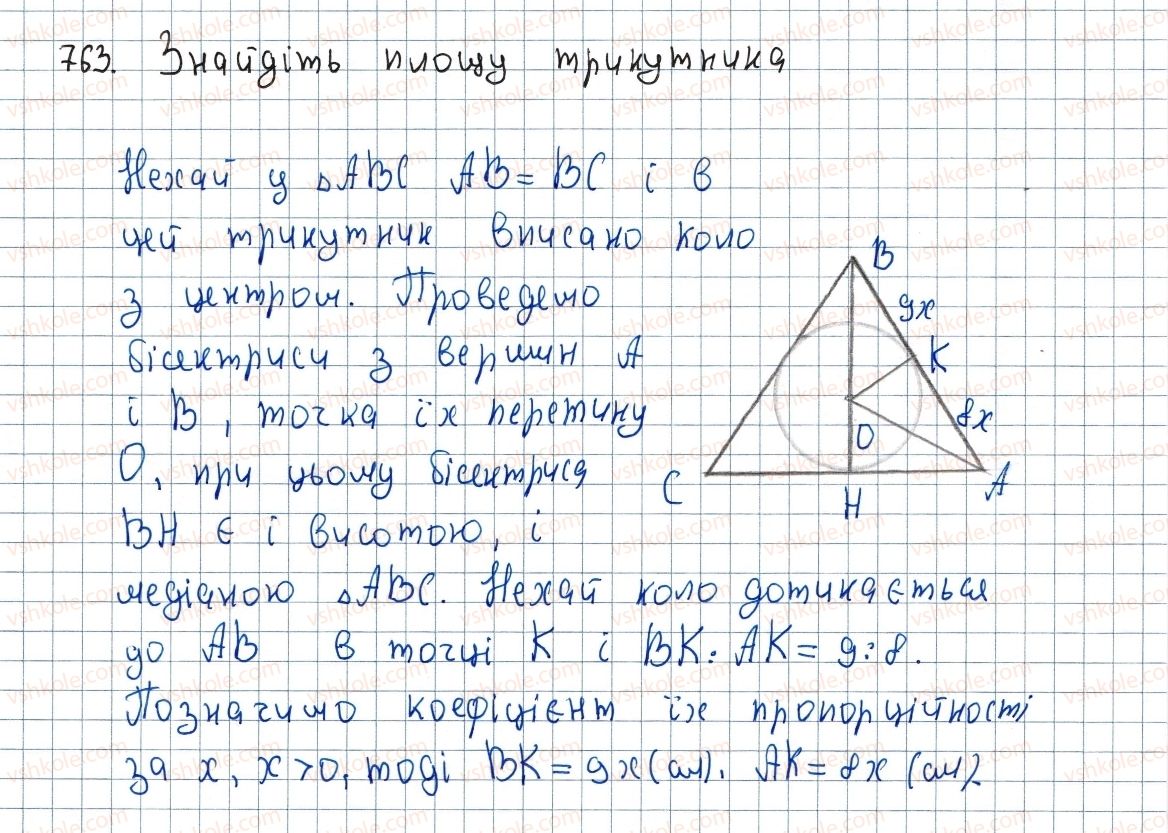 763. Знайдіть площу трикутника
Нехай у △ABC AB = BC і в
цей трикутник вписано коло
з центром. Проведемо
бісектриси з вершин A
і B, точка їх перетину
O, при цьому бісектриса
BH є і висотою, і
медіаною △ABC. Нехай коло дотикається
до AB в точці K і BK : AK = 9 : 8.
Позначимо коефіцієнт їх пропорційності
за x, x > 0, тоді BK = 9x (см). AK = 8x (см).
B
9x
K
8x
O
C
H
A
vshkole.com